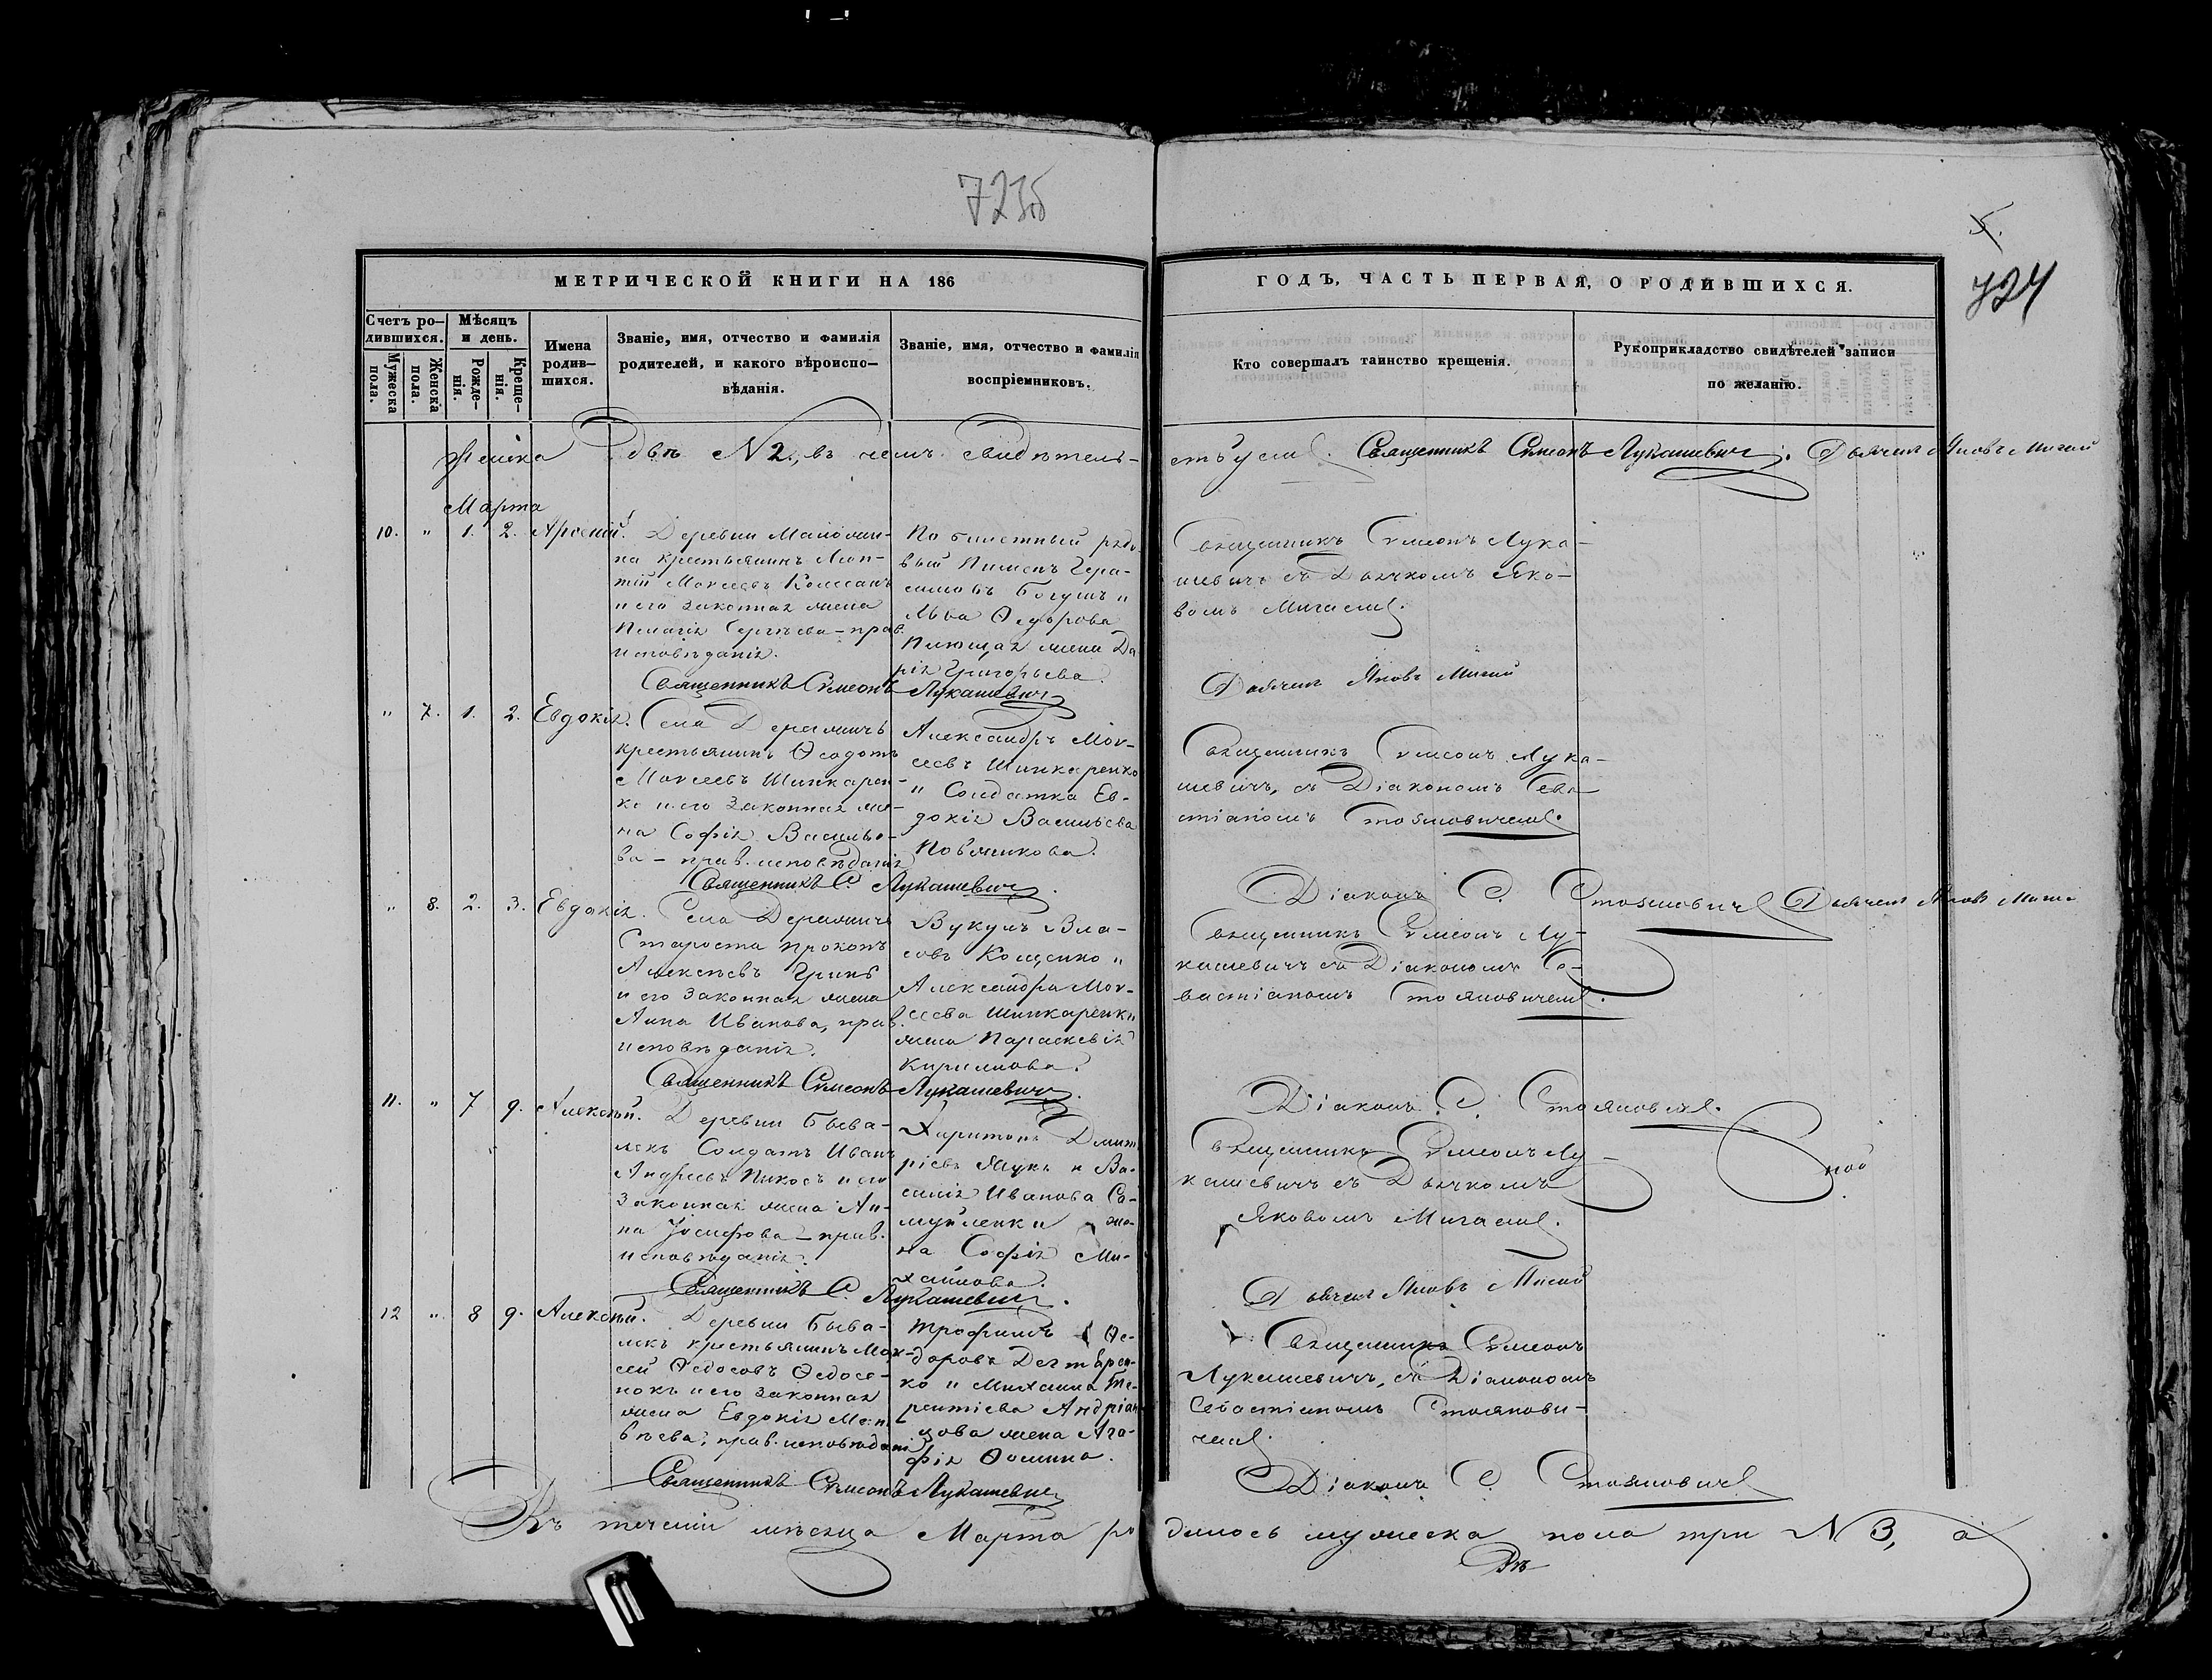 723об
5.
724
МЕТРИЧЕСКОЙ КНИГИ НА 186
ГОДЪ, ЧАСТЬ ПЕРВАЯ, О РОДИВШИХСЯ.
Счетъ ро-
дившихся.
Мужеска пола.
Женска пола.
Мѣсяцъ
и день.
Рожде-
нія.
Креще-
нія.
Имена
родив-
шихся.
Званіе, имя, отчество и фамилія
родителей, и какого вѣроиспо-
вѣданія.
Званіе, имя, отчество и фамилія
воспріемниковъ.
Кто совершалъ таинство крещенія.
Рукоприкладство свидѣтелей записи
по желанію.
женска Двѣ N 2., въ чемъ свидѣтель-
ствуемъ. Священникъ Симеонъ Лукашевичъ. Дьячекъ Яковъ Мигай
Марта
10. " 1. 2. Арсений.
Деревни
на крестьянинъ Леон-
тій Моисеевъ
и его законная жена
Пелагія Сергѣева - прав.
исповѣданія.
Священникъ Симеонъ Лукашевичъ
По билетный рядо-
вый Пименъ Гера-
симовъ Богушъ и
Льва Ѳедорова
жена Да
рія Григорьева.
Священникъ Симеонъ Лука-
шевичъ съ Дьячкомъ Яко-
вомъ Мигаемъ.
Дьячекъ Яковъ Мигай
" 7. 1. 2. Евдокія.
Села
крестьянинъ Ѳеодотъ
Моисеевъ Шинкарен-
ко и его законная же-
на Софія Василье-
ва - прав. исповѣданія
Священникъ С. Лукашевичъ.
Александръ Мои-
сеевъ Шинкаренко
и Солдатка Ев-
докія Васильева
Священникъ Симеонъ Лука-
шевичъ, съ Діакономъ Сева-
стіаномъ Стояновичемъ.
Діаконъ С. Стояновичъ Дьячекъ Яковъ
" 8. 2. 3. Евдокія.
Села
Староста Прокопъ
Алексѣевъ Гринь
и его законная жена
Анна Иванова, прав.
исповѣданія.
Священникъ Симеонъ Лукашевичъ.
Вукулъ Вла-
совъ Кощенко и
Александра Мои-
сеева Шинкаренки
жена Параскевія
Кирилова.
Священникъ Симеонъ Лу-
кашевичъ съ Діакономъ Се-
вастіаномъ Стояновичемъ.
Діаконъ С. Стояновичъ.
11. " 7 9. Алексѣй.
Деревни Быва-
лекъ Солдатъ Иванъ
Андреевъ и его
законная жена Ан-
на Іосифова - прав.
исповѣданія.
Священникъ С. Лукашевичъ.
Харитонъ Дмит
ріевъ Жукъ и Ва-
силія Иванова Са-
муйленки же-
на Софія Ми-
хайлова.
Священникъ Симеонъ Лу-
кашевичъ съ Дьячкомъ
Яковомъ Мигаемъ.
Дьячекъ Яковъ Мигай
12 " 8 9. Алексѣй.
Деревни Быва-
лекъ крестьянинъ Мои-
сей Ѳедосовъ Ѳедосе-
нокъ и его законная
жена Евдокія Мат
вѣева, прав. исповѣданія
Священникъ Симеонъ Лукашевичъ
Трофимъ Ѳе-
доровъ Дегтярен-
ко и Михаила Те-
рентіева
жена Ага-
фія Ѳомина.
Священникъ Симеонъ
Лукашевичъ, съ Діакономъ
Севастіаномъ Станови-
чемъ.
Діаконъ С. Стояновичъ
Въ теченіи мѣсяца Марта ро дилось мужеска пола три N 3, а